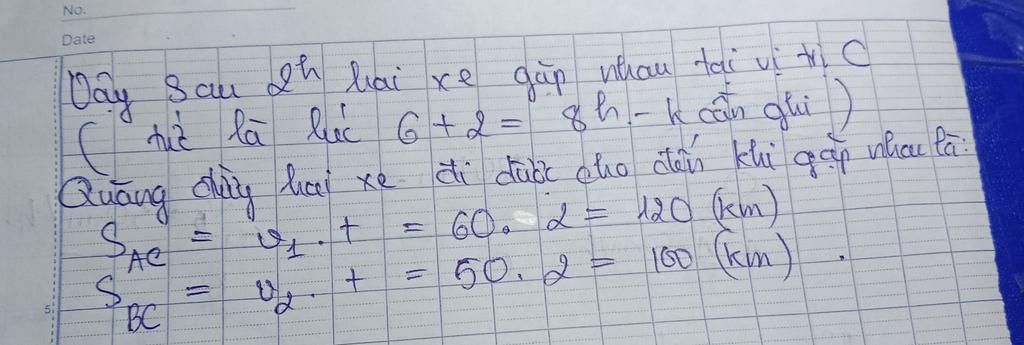 No.
Date
Vậy sau 2h hai xe gặp nhau tại vị trí C
( tức là lúc 6 + 2 = 8h - k cần ghi )
Quãng đường hai xe đi được cho đến khi gặp nhau là:
S_AC = v_1 . t = 60. 2 = 120 (km)
S_BC = v_2 . t = 50. 2 = 100 (km) .
5